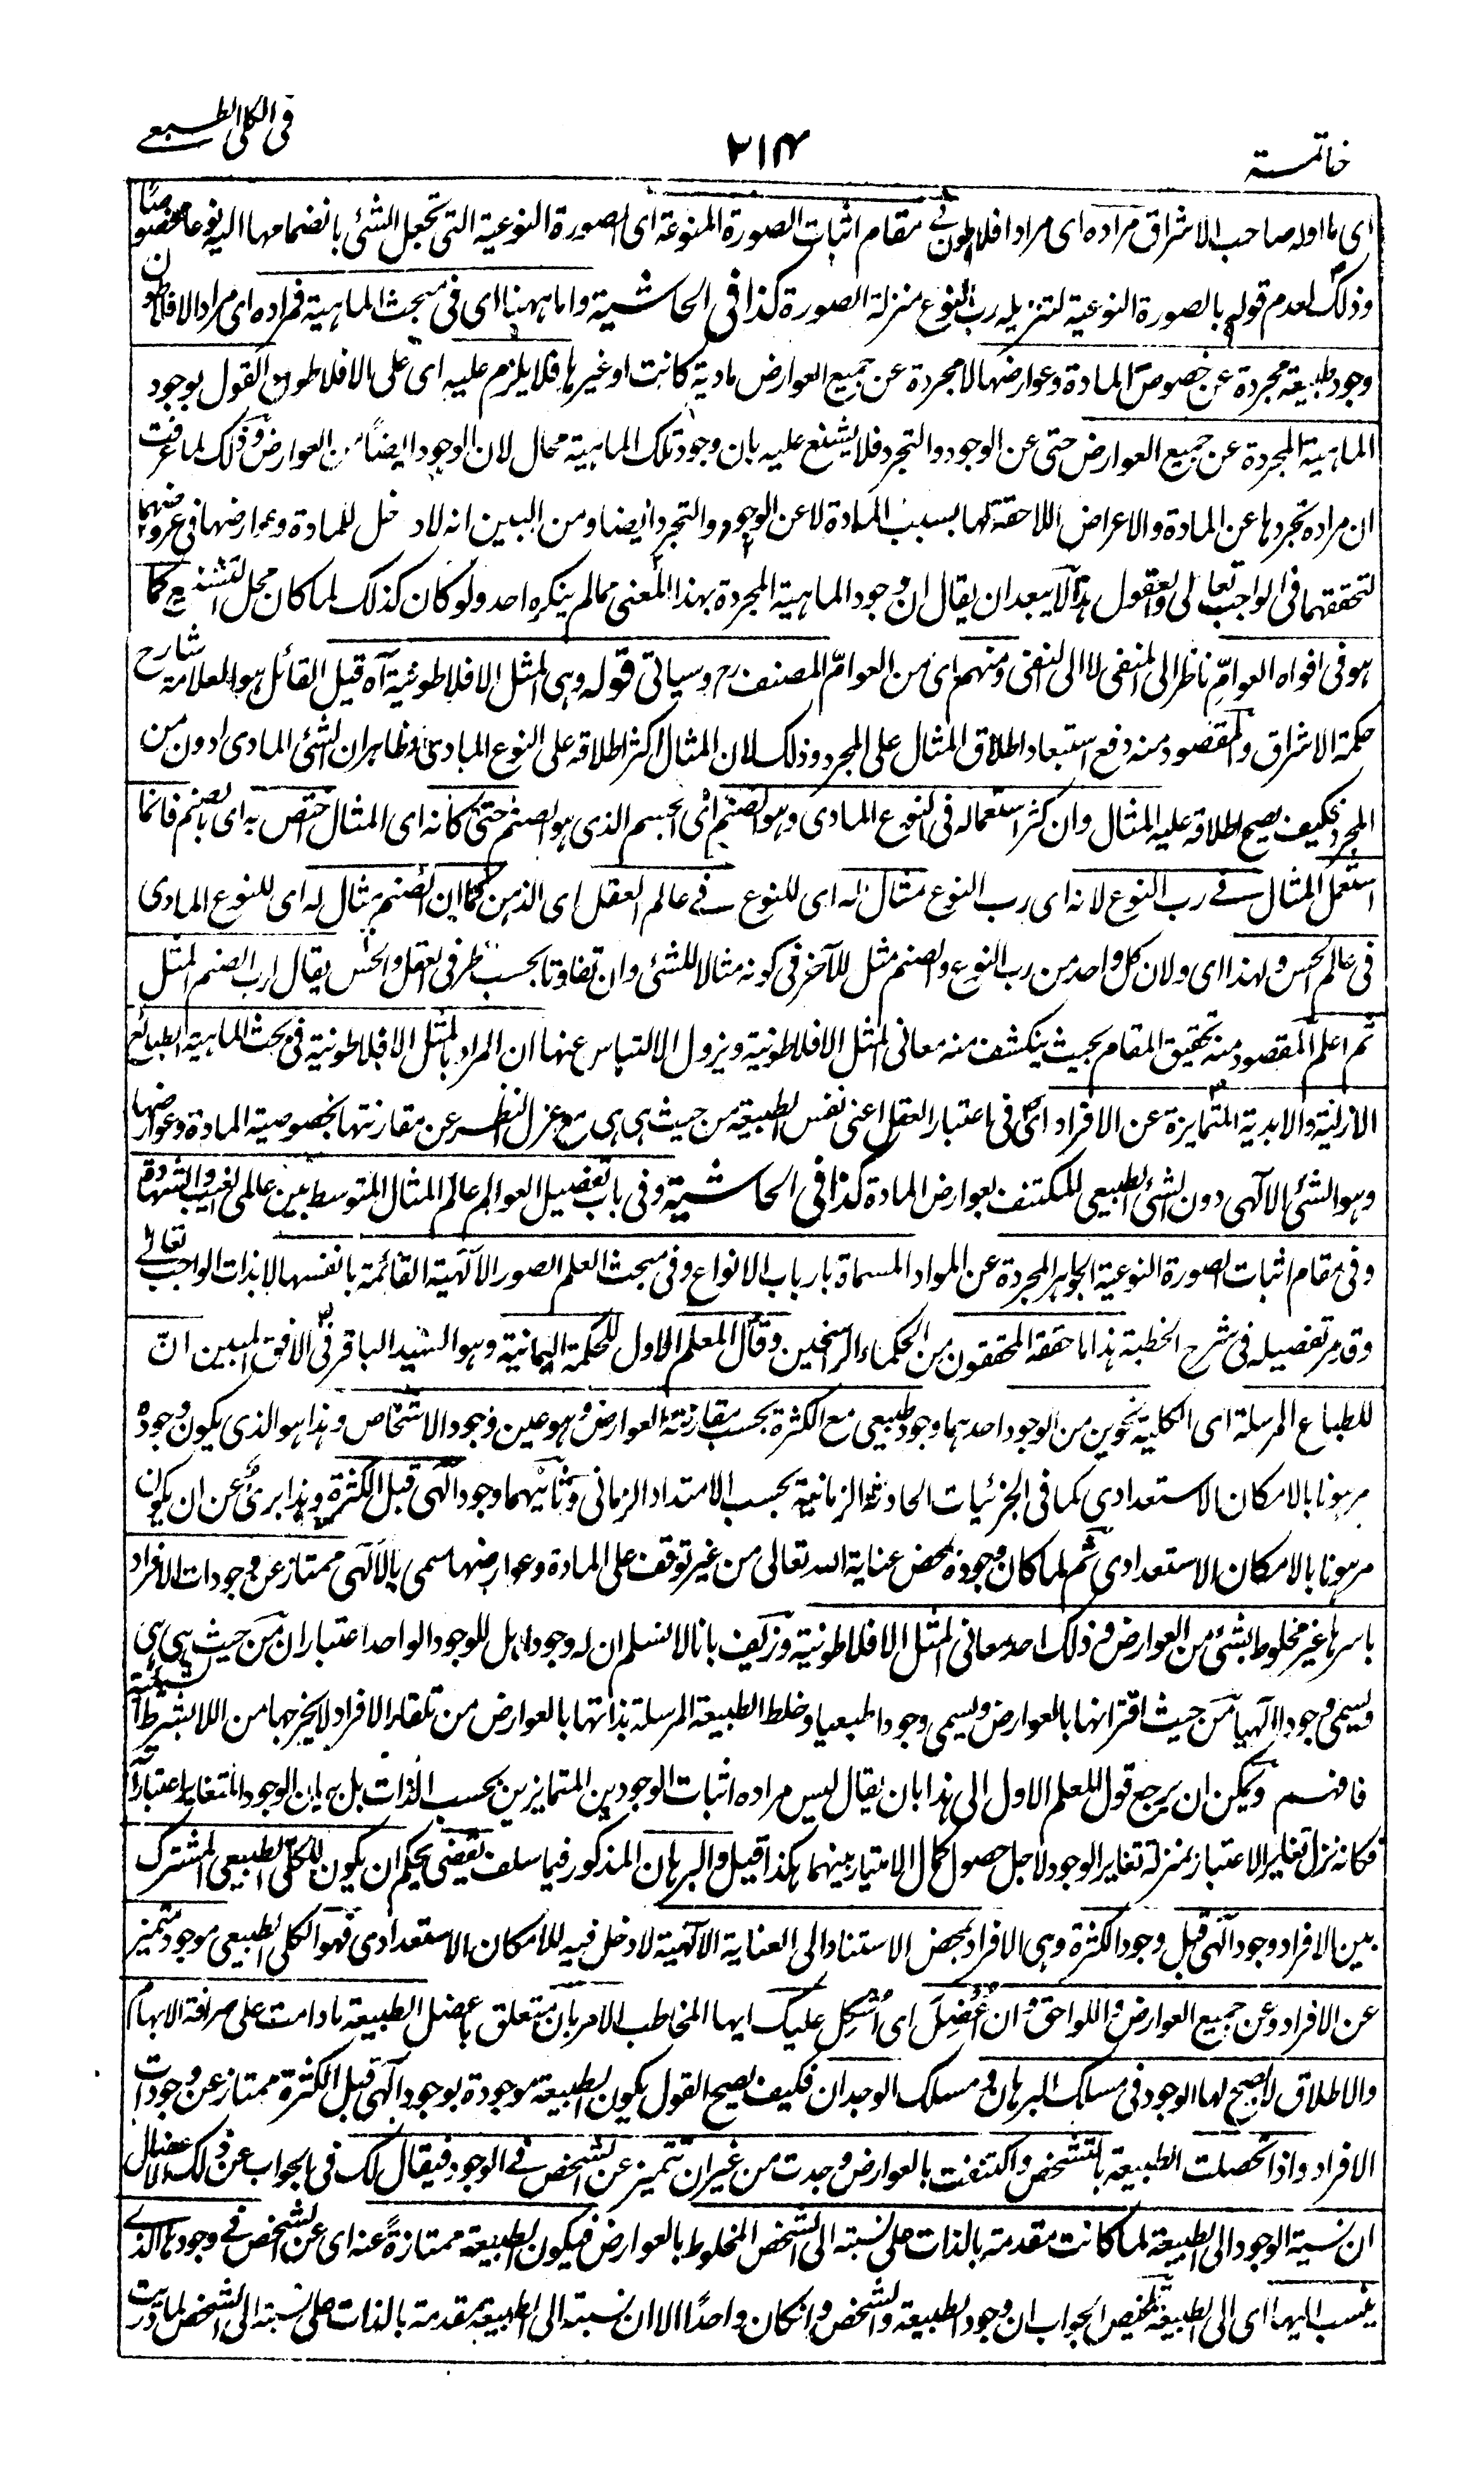 خاتمة
٢١٤
في الكلي الطبعي
اى ما اوله صاحب الاشراق مراده اى مراد افلاطون في مقام اثبات الصورة المنوعة اى الصورة النوعية التى تجعل الشئ بانضمامها اليه نوعا مخصوصًا
وذلك لعدم قوله بالصورة النوعية لتنزيله رب النوع منزلة الصورة كذا فى الحاشية واما ههنا اى فى مبحث الماهية فمراده اى مراد الافلاطون
وجود طبيعة مجردة عن خصوص المادة وعوارضها لا مجردة عن جميع العوارض مادية كانت او غيرها فلا يلزم عليه اى على الافلاطون القول بوجود
الماهية المجردة عن جميع العوارض حتى عن الوجود والتجرد فلا يشنع عليه بان وجود تلك الماهية محال لان الوجود ايضاً من العوارض وذلك لما عرفت
ان مراده تجردها عن المادة والاعراض اللاحقة لها بسبب المادة لا عن الوجود والتجرد ايضا ومن البين انه لا دخل للمادة وعوارضها فى عروضهما
لتحققهما فى الواجب تعالى والعقول هذا لا يبعد ان يقال ان وجود الماهية المجردة بهذا المعنى مما لم ينكره احد ولو كان كذلك لما كان محل التشنيع كما
هو فى افواه العوامّ ناظر الى المنفى لا الى النفى ومنهم اى من العوامّ المصنف رح وسياتى قوله وهى المثل الافلاطونية آه قيل القائل هو العلامة شارح
حكمة الاشراق والمقصود منه دفع استبعاد اطلاق المثال على المجرد وذلك لان المثال اكثر اطلاقه على النوع المادى وظاهر ان الشئ المادى ادون من
المجرد فكيف يصح اطلاقه عليه المثال وان كثر استعماله فى النوع المادى وهو الصنم اى الجسم الذى هو الصنم حتى كانه اى المثال اختص به اى بالصنم فانما
استعمل المثال فى رب النوع لانه اى رب النوع مثال له اى للنوع فى عالم العقل اى الذهن كما ان الصنم مثال له اى للنوع المادى
فى عالم الحس ولهذا اى ولان كل واحد من رب النوع والصنم مثل للآخر فى كونه مثالا للشئ وان تفاوتا بحسب ظرفى العقل والحس يقال ارب الصنم المثل
ثم اعلم المقصود منه تحقيق المقام بحيث ينكشف منه معانى المثل الافلاطونية ويزول الالتباس عنها ان المراد بالمثل الافلاطونية فى بحث الماهية الطبائع
الازلية والابدية المتمايزة عن الافراد اى فى اعتبار العقل اعنى نفس الطبيعة من حيث هى هى مع عزل النظر عن مقارنتها بخصوصية المادة وعوارضها
وهو الشئ الالٰهى دون الشئ الطبيعى المكتنف بعوارض المادة كذا فى الحاشية وفى باب تفصيل العوالم عالم المثال المتوسط بين عالمى الغيب والشهادة
وفى مقام اثبات الصورة النوعية الجواهر المجردة عن المواد المسماة بارباب الانواع وفى مبحث العلم الصور الالٰهية القائمة بانفسها لا بذات الواجب تعالى
وقد مر تفصيله فى شرح الخطبة هذا ما حققه المحققون من الحكماء الراسخين وقال المعلم الاول للحكمة اليمانية وهو السيد الباقر فى الافق المبين انّ
للطباع المرسلة اى الكلية نحوين من الوجود احدهما وجود طبيعى مع الكثرة بحسب مقارنة العوارض وهو عين وجود الاشخاص وهذا هو الذى يكون وجوده
مرهونا بالامكان الاستعدادى كما فى الجزئيات الحادثة الزمانية بحسب الامتداد الزمانى وثانيهما وجود الٰهى قبل الكثرة وهذا برئ عن ان يكون
مرهونا بالامكان الاستعدادى ثم لما كان وجوده بمحض عناية الله تعالى من غير توقف على المادة وعوارضها سمى بالالٰهى ممتاز عن وجودات الافراد
باسرها غير مخلوط بشئ من العوارض وذلك احد معانى المثل الافلاطونية وزيف بانا لا نسلم ان له وجودا بل للوجود الواحد اعتباران من حيث هى هى
ويسمى وجودا الٰهيا من حيث اقترانها بالعوارض ويسمى وجودا طبعيا وخلط الطبيعة المرسلة بذاتها بالعوارض من تلقاء الافراد لا يخرجها من اللابشرطية
فافهم ويمكن ان يرجع قول المعلم الاول الى هذا بان يقال ليس مراده اثبات الوجودين المتمايزين بحسب الذات بل بيان الوجود المتغاير اعتبارا
فكانه نزل تغاير الاعتبار بمنزلة تغاير الوجود لاجل حصول كمال الامتياز بينهما هكذا قيل والبرهان المذكور فيما سلف يقضى يحكم ان يكون للكلى الطبيعى المشترك
بين الافراد وجود الٰهى قبل وجود الكثرة وهى الافراد بمحض الاستناد الى العناية الالٰهية لا دخل فيه للامكان الاستعدادى فهو الكلى الطبيعى موجود متميز
عن الافراد وعن جميع العوارض واللواحق وان اُعْضِلَ اى اشكل عليك ايها المخاطب الامر بان متعلق باعضل الطبيعة ما دامت على صرافة الابهام
والاطلاق لا يصح لها الوجود فى مسلك البرهان ومسلك الوجدان فكيف يصح القول بكون الطبيعة موجودة بوجود الٰهى قبل الكثرة ممتاز عن وجودات
الافراد واذا تحصلت الطبيعة بالتشخص واكتنفت بالعوارض وجدت من غير ان تتميز عن الشخص فى الوجود فيقال لك فى الجواب عن ذلك الاعضال
ان نسبة الوجود الى الطبيعة لما كانت مقدمة بالذات على نسبته الى الشخص المخلوط بالعوارض فيكون الطبيعة ممتازةً عنه اى عن الشخص فى وجودها الذى
ينسب اليها اى الى الطبيعة تلخيص الجواب ان وجود الطبيعة والشخص وان كان واحدًا الا ان نسبته الى الطبيعة مقدمة بالذات على نسبته الى الشخص لما دريت